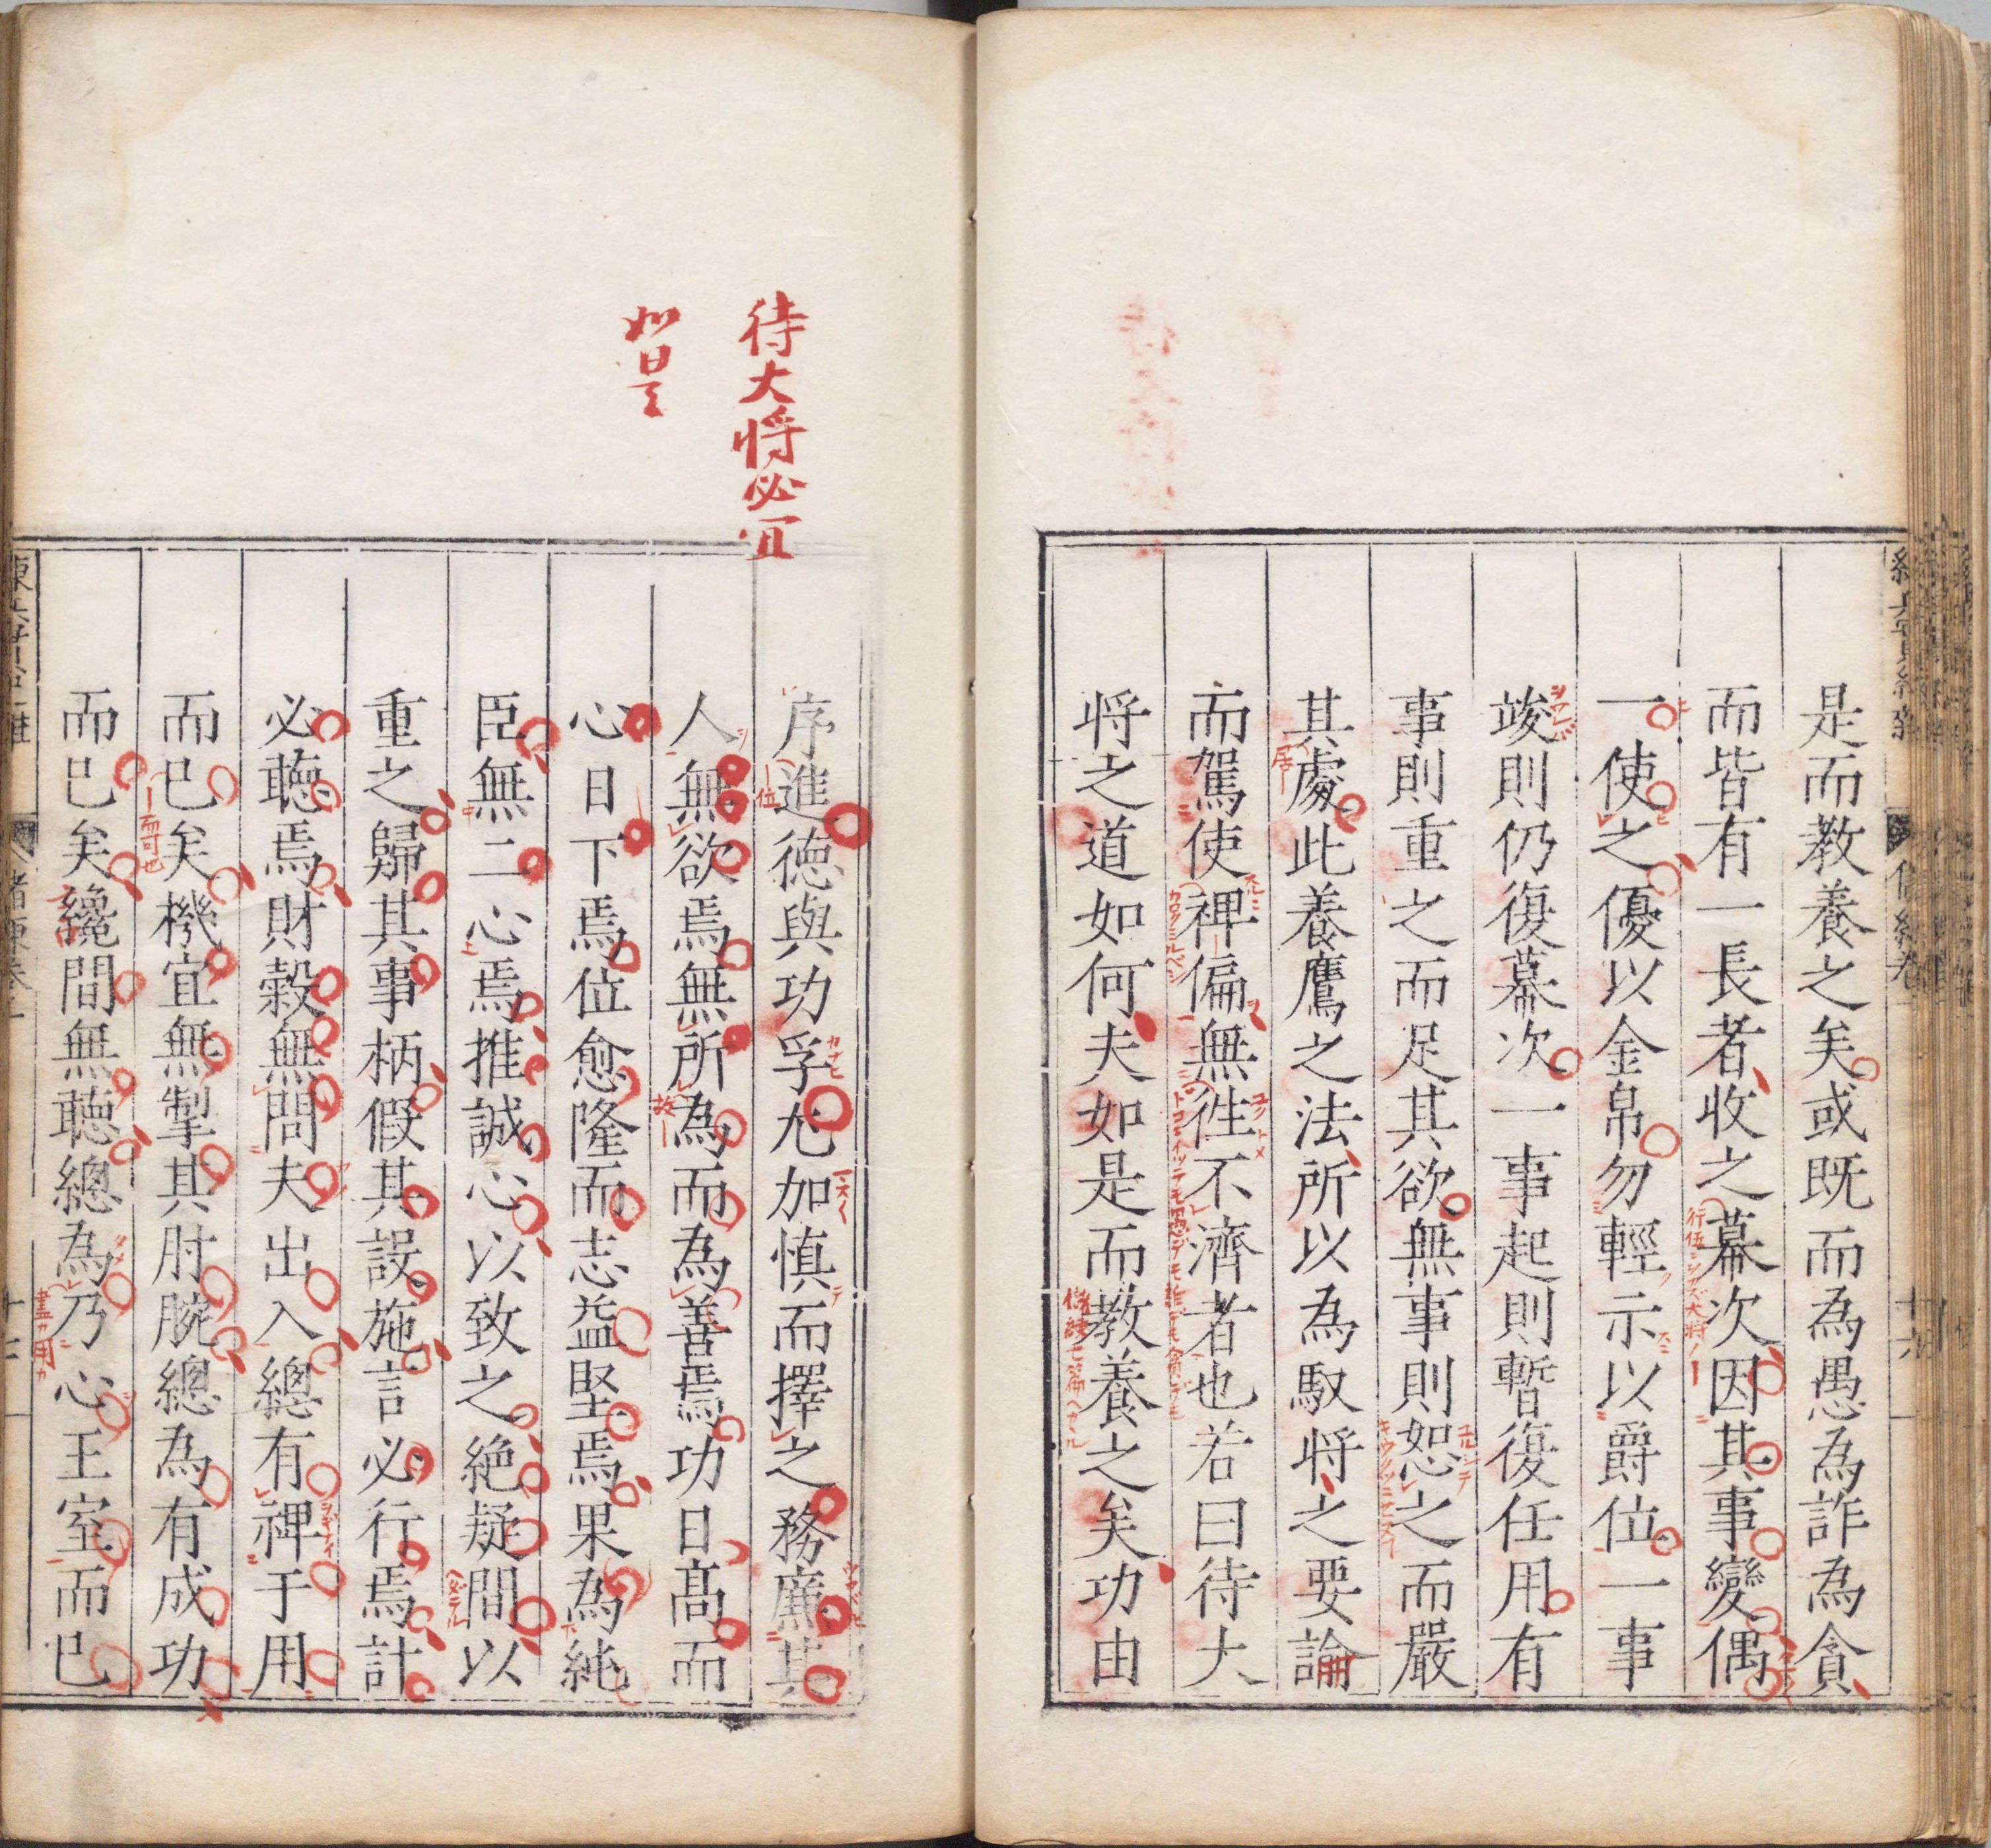 是而教養之矣或既而為愚為詐為貪
而皆有一長者收之幕次因其事變偶
一使之優以金帛勿輕示以爵位一事
竣則仍復幕次一事起則暫復任用有
事則重之而足其欲無事則恕之而嚴
其處此養鷹之法所以為馭将之要論
而駕使裨偏無徃不濟者也若曰待大
将之道如何夫如是而教養之矣功由
待大将必宜
如是
序進德與功孚尤加慎而擇之務廉其
人無欲焉無所為而為善焉功日髙而
心日下焉位愈隆而志益堅焉果為純
臣無二心焉推誠心以致之絶疑間以
重之歸其事柄假其設施言必行焉計
必聴焉財穀無問夫出入總有裨于用
而巳矣機宜無掣其肘腕總為有成功
而巳矣纔間無聴總為乃心王室而巳